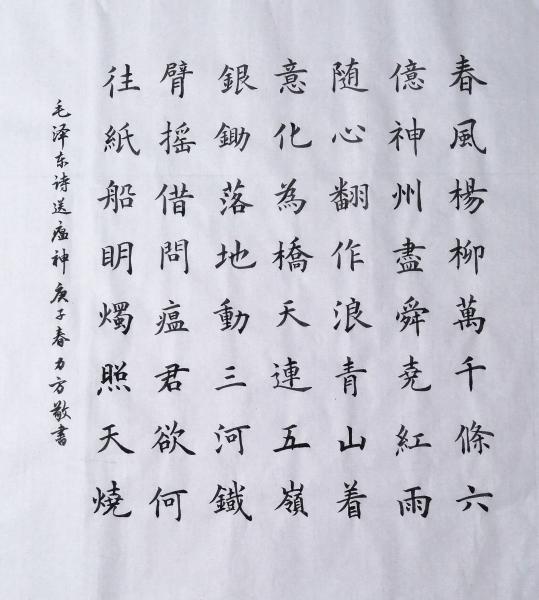 春風楊柳萬千條六
億神州盡舜尭紅雨
随心翻作浪青山着
意化為橋天連五嶺
銀鋤落地動三河鐵
臂摇借問瘟君欲何
往紙船明燭照天燒
毛泽东诗送瘟神庚子春力方敬書